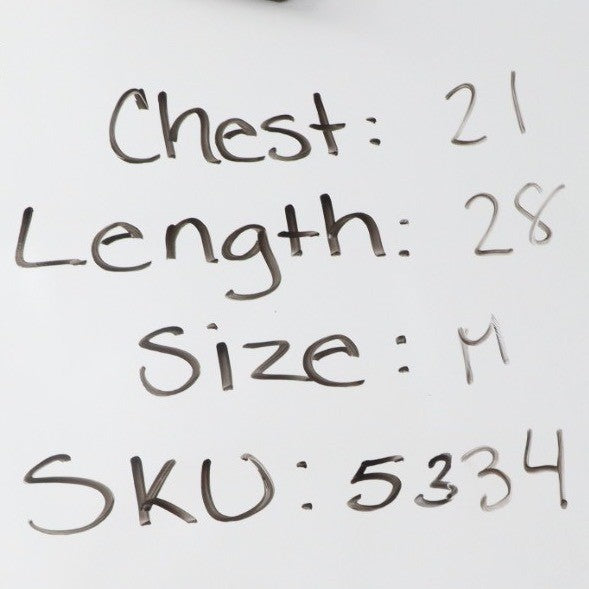 Chest: 21
Length: 28
Size: M
SKU: 5334